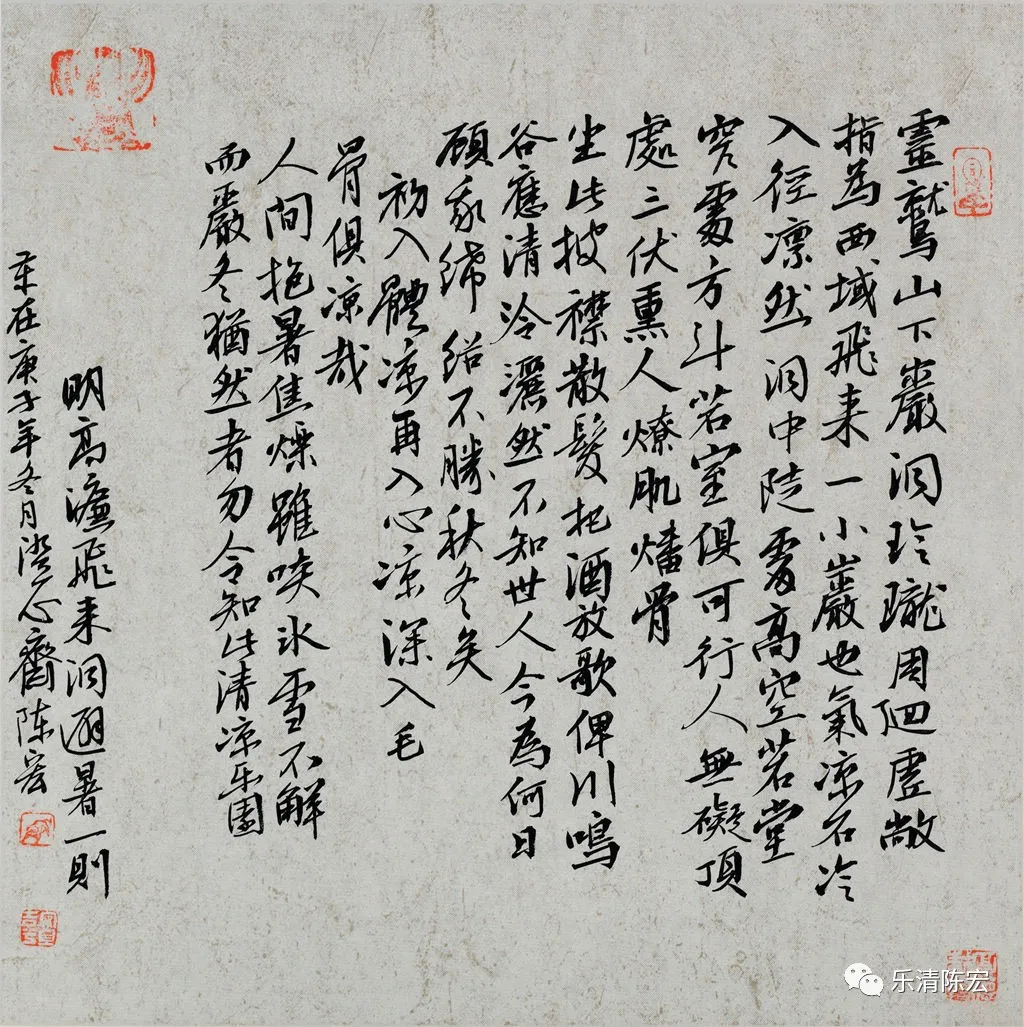 靈鷲山下巖洞玲瓏周迴虛敞
指為西域飛来一小巖也氣凉石冷
入徑凛然洞中陡處高空若堂
窄處方斗若室俱可行人無礙頂
處三伏熏人燎肌燔骨
坐此披襟散髮把酒放歌俾川鳴
谷應清泠灑然不知世人今為何日
顧我絺綌不勝秋冬矣
初入體凉再入心凉深入毛
骨俱凉哉
人間抱暑焦爍雖啖冰雪不解
而嚴冬猶然者勿令知此清凉乐國
明高濂飛来洞避暑一則
庚子年冬月澄心齋陈宏
乐清陈宏